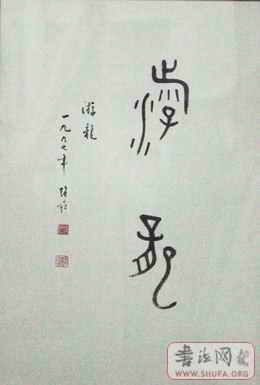 游龍
游龍
一九九七年
书法网
WWW.SHUFA.ORG